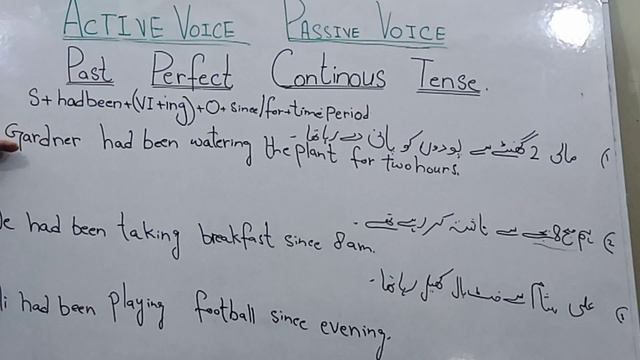 ACTIVE VOICE PASSIVE VOICE
Past Perfect Continous Tense.
S+hadbeen+(VI+ing)+O+since/for+time Period
مالی 2 گھنٹے سے پودوں کو پانی دے رہا تھا۔ (1
Gardner had been watering the plant for two hours.
ہم صبح 8 بجے سے ناشتہ کر رہے تھے۔ (2
e had been taking breakfast since 8am.
علی شام سے فٹ بال کھیل رہا تھا۔
li had been playing football since evening.